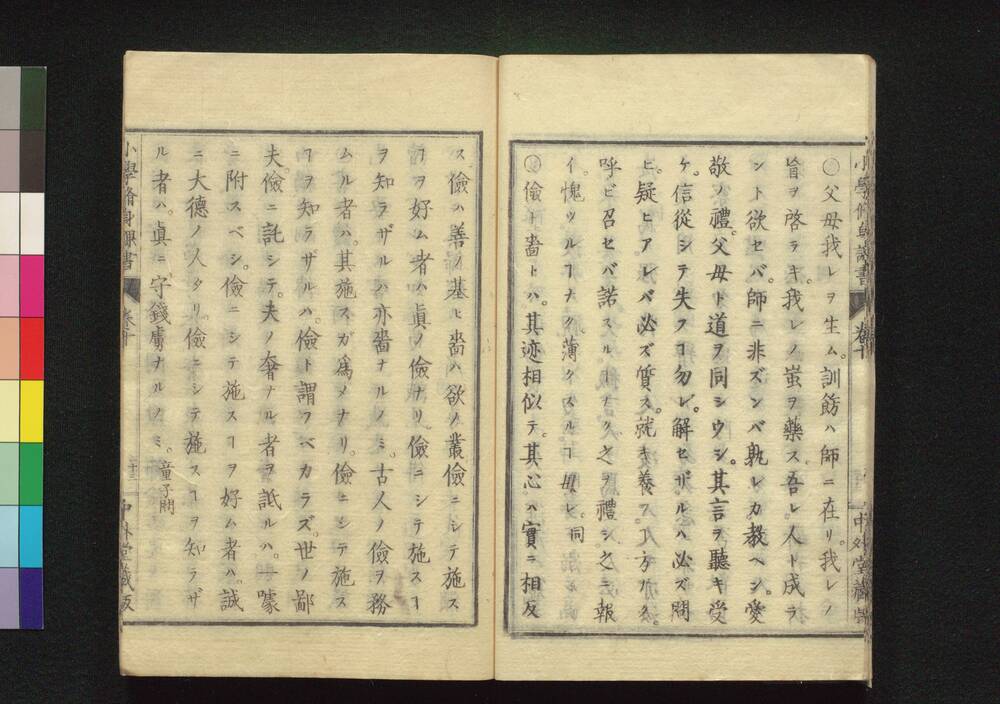 〇父母我レヲ生ム。訓飭ハ師ニ在リ。我レノ
旨ヲ啓ラキ。我レノ蚩ヲ藥ス。吾レ人ト成ラ
ント欲セバ。師ニ非ズンバ孰レカ教ヘン。愛
敬ノ禮。父母ト道ヲ同シウシ。其言ヲ聽キ受
ケ。信從シテ失フヿ勿レ。解セザルハ必ズ問
ヒ。疑ヒアレバ必ズ質ス。就キ養フヿ方ナク。
呼ビ召セバ諾スルヿナク。之ヲ禮シ。之ニ報
イ。愧ヅルヿナク薄クスルヿ毋レ。同
〇儉ト嗇トハ。其迹相似テ。其心ハ實ニ相反
ス。儉ハ善ノ基ヒ嗇ハ欲ノ叢儉ニシテ施ス
ヿヲ好ム者ハ眞ノ儉ナリ儉ニシテ施スヿ
ヲ知ラザルハ亦嗇ナルノミ。古人ノ儉ヲ務
ムル者ハ。其施スガ爲メナリ。儉ニシテ施ス
ヿヲ知ラザルハ。儉ト謂フベカラズ。世ノ鄙
夫。儉ニ託シテ。夫ノ奢ナル者ヲ詆ルハ。一噱
ニ附スベシ。儉ニシテ施スヿヲ好ム者ハ。誠
ニ大德ノ人タリ。儉ニシテ施スヿヲ知ラザ
ル者ハ。眞ニ守錢虜ナルノミ。童子問
小學脩身課書 卷十 二十三 中外堂藏版